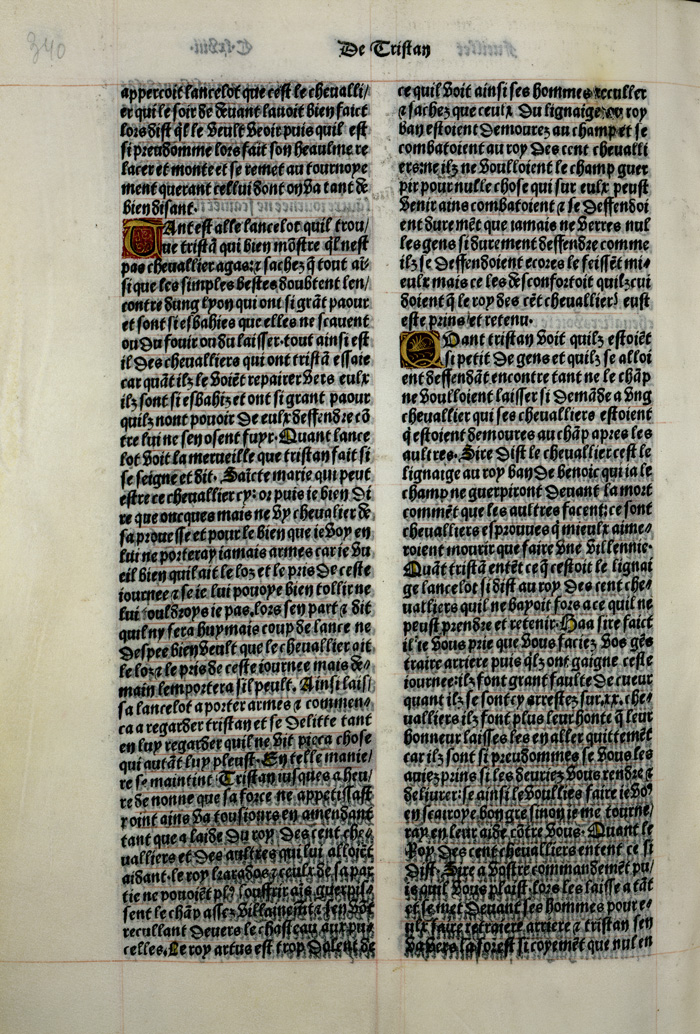 340
De Tristan
appercoit lancelot que cest le chevalli/
er qui le soir de devant lauoit bien faict
lors dist q̃l le veult veoir puis quil est
si preudomme lors fait son heaulme re
lacer et monte et se remet au tournoye
ment querant cellui dont on va tant de
bien disant.
TAnt est alle lancelot quil trou/
ue tristã qui bien mõstre q̃l nest
pas chevallier agast: ⁊ sachez q̃ tout aĩ/
si que les simples bestes doubtent len/
contre dung lyon qui ont si grãt paour
et sont si esbahies que elles ne scauent
ou du fouir ou du laisser. tout ainsi est
il des chevalliers qui ont tristã essaie
car quãt ilz le voiẽt repairer vers eulx
ilz sont si esbahiz et ont si grant paour
quilz nont pouoir de eulx deffendre cõ
tre lui ne sen osent fuyr. Quant lance
lot voit la merueille que tristan fait si
se seigne et dit. Saĩcte marie qui peut
estre ce chevallier cy: or puis ie bien di
re que oncques mais ne vy chevalier de
sa prouesse et pour le bien que ie voy en
lui ne porteray iamais armes car ie vu
eil bien quil ait le loz et le pris de ceste
iournee ⁊ se ie lui pouoye bien tollir ne
lui vouldroys ie pas. lors sen part ⁊ dit
quil ny fera huymais coup de lance ne
despee bien veult que le chevallier ait
le loz ⁊ le pris de ceste iournee mais de/
main lemportera sil peult. Ainsi laisi/
sa lancelot a porter armes ⁊ commen/
ca a regarder tristan et se delitte tant
en luy regarder quil ne vit pieca chose
qui autãt luy pleust. En telle manie/
re se maintint Tristan iusques a heu/
re de nonne que sa force ne appetissast
point ains va tousiours en amendant
tant que a laide du roy des cent che/
ualliers et des aultres qui lui alloiẽt
aidant. le roy karados ⁊ ceulx de sa par
tie ne pouoiẽt plꝰ souffrir ais guerpis/
sent le chãp assez villainemẽt ⁊ sen võt
recullant devers le chasteau aux pu/
celles. Le roy artus est trop dolent de
ce quil voit ainsi ses hommes reculler
⁊ sachez que ceulx du lignaige au roy
ban estoient demourez au champ et se
combatoient au roy des cent chevalli
ers: ne ilz ne voulloient le champ guer
pir pour nulle chose qui sur eulx peust
venir ains combatoient ⁊ se deffendoi
ent dure mẽt que iamais ne verres nul
les gens si durement deffendre comme
ilz se deffendoient ecores le feissẽt mi/
eulx mais ce les desconfortoit quilz cui
doient q̃ le roy des cẽt chevallier s eust
este prins et retenu.
QVant tristan voit quilz estoiẽt
si petit de gens et quilz se alloi
ent deffendãt encontre tant ne le chãp
ne voulloient laisser si demãde a vng
chevallier qui ses chevalliers estoient
q̃ estoient demoures au chãp apres les
aultres. Sire dist le chevallier cest le
lignaige au roy ban de benoic qui ia le
champ ne guerpiront devant la mort
commẽt que les aultres facent: ce sont
chevalliers esprouues q̃ mieulx aime/
roient mourir que faire vne villennie.
Quãt tristã entẽt ce q̃ cestoit le lignai
ge lancelot si dist au roy des cent che/
ualliers quil ne bayoit fors a ce quil ne
peust prendre et retenir. Haa sire faict
il ie vous prie que vous faciez vos gẽs
traire arriere puis q̃lz ont gaigne ceste
iournee: ilz font grant faulte de cueur
quant ilz se sont cy arrestez sur .xx. che/
ualliers ilz font plus leur honte q̃ leur
honneur laisses les en aller quittemẽt
car ilz sont si preudommes se vous les
auiez prins si les deuriez vous rendre ⁊
deliurer: se ainsi le voullies faire ie võ⁹
en scairoye bon gre sinon ie me tourne/
ray en leur aide cõtre vous. Quant le
Roy des cent chevalliers entent ce si
dist. Sire a vostre commandemẽt pu/
is quil vous plaist. lors les laisse a tãt
et se met devant ses hommes pour e/
ulx faire retraire arriere ⁊ tristan sen
va vers la forest si coyemẽt que nul en